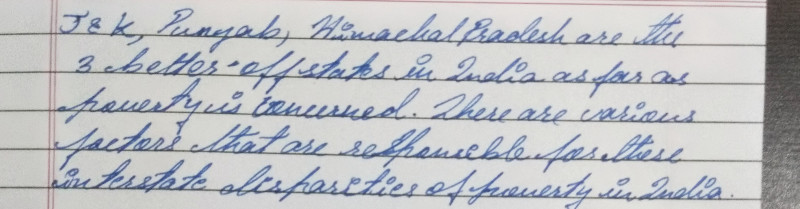 J & K, Punjab, Himachal Pradesh are the
3 better-off states in India as far as
poverty is concerned. There are various
factors that are responsible for these
interstate disparities of poverty in India.